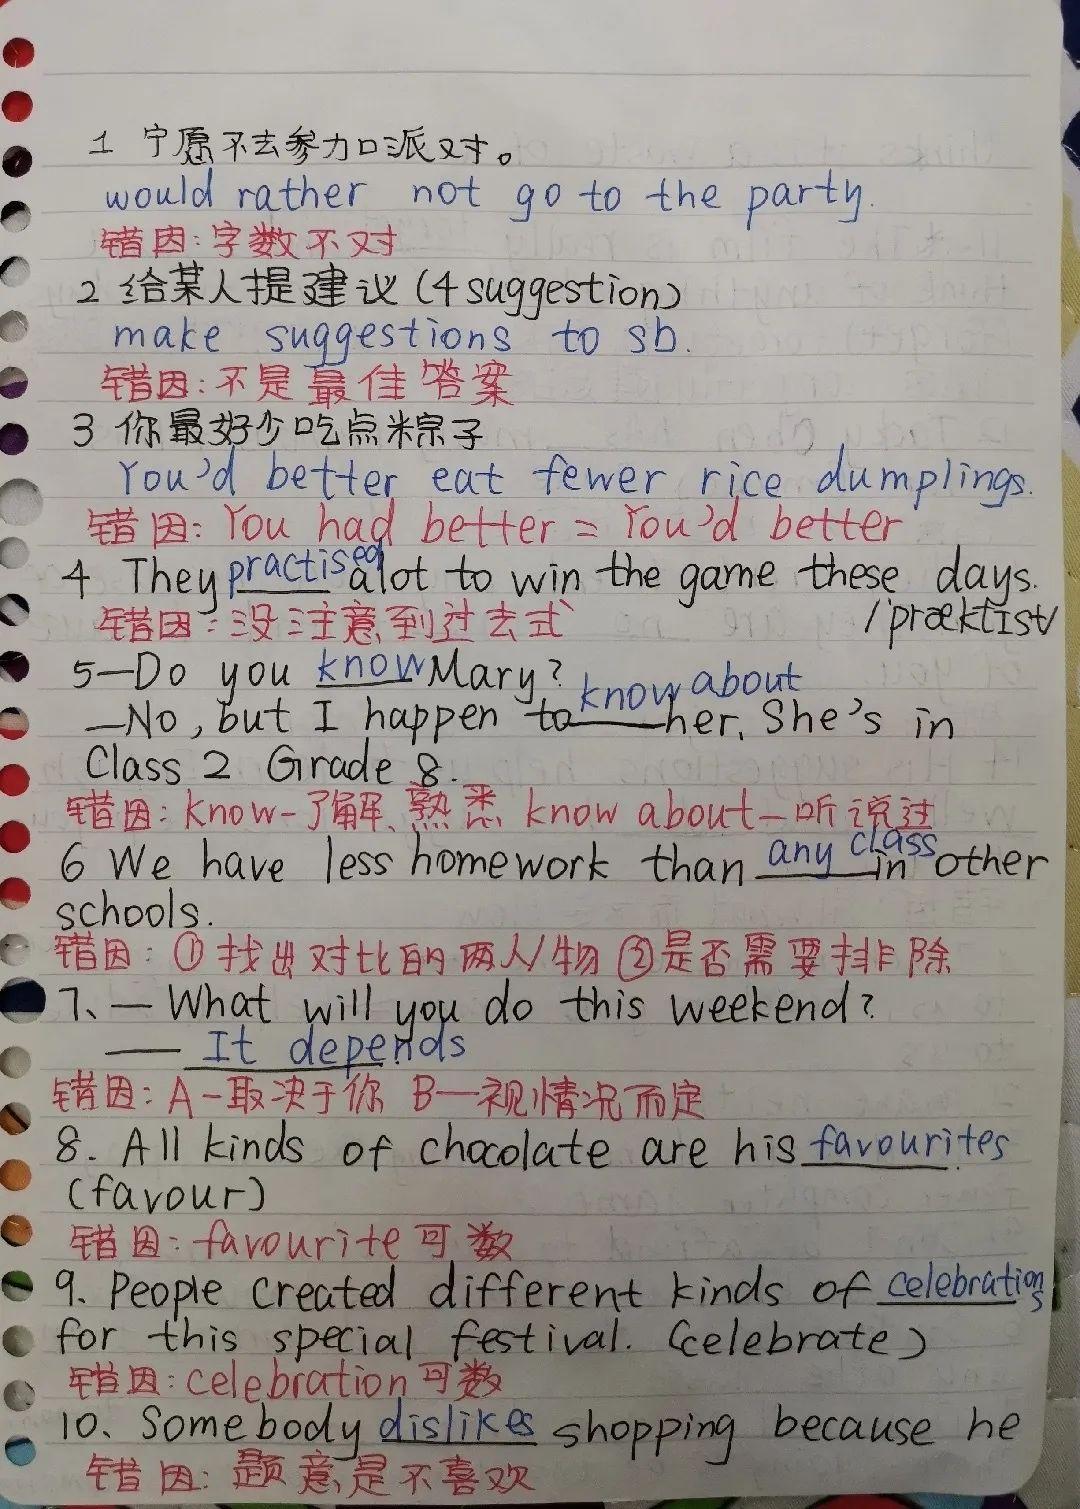 1 宁愿不去参加派对。
would rather not go to the party.
错因:字数不对
2 给某人提建议(4 suggestion)
make suggestions to sb.
错因:不是最佳答案
3 你最好少吃点粽子
You'd better eat fewer rice dumplings.
错因: You had better = You'd better
4 They practised alot to win the game these days.
错因:没注意到过去式 /'præktɪst/
5—Do you know Mary?
—No, but I happen to know about her. She's in
Class 2 Grade 8.
错因: know-了解、熟悉 know about—听说过
6 We have less homework than any class in other
schools.
错因: ①找出对比的两人/物 ②是否需要排除
7、— What will you do this weekend?
— It depends
错因: A-取决于你 B—视情况而定
8. All kinds of chocolate are his favourites.
(favour)
错因: favourite可数
9. People created different kinds of celebrations
for this special festival. (celebrate)
错因: celebration可数
10、Somebody dislikes shopping because he
错因: 题意是不喜欢